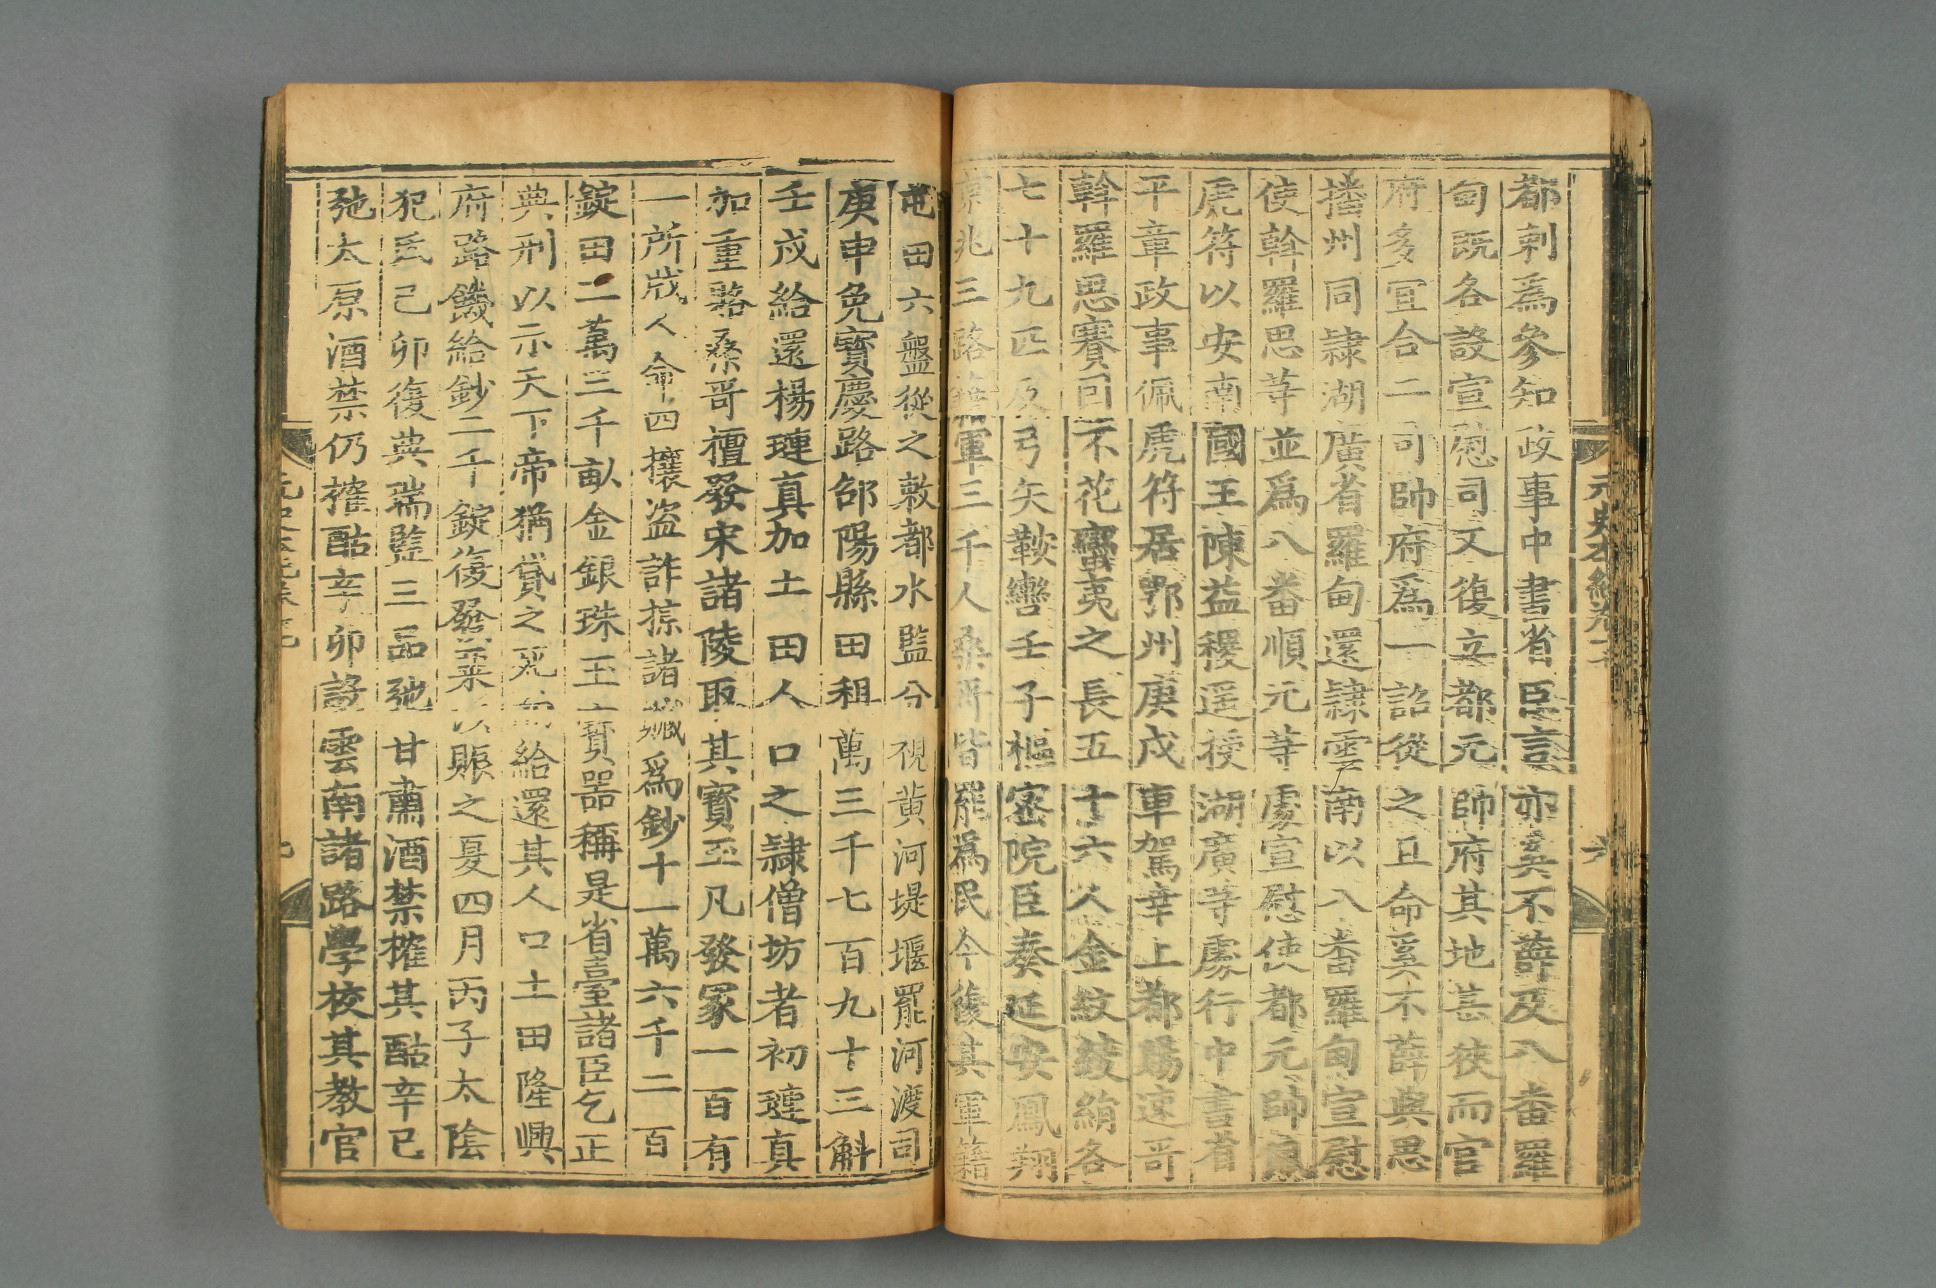 都刺爲參知政事中書省臣言亦奚不薛及八番羅
甸旣各設宣慰司又復立都元帥府其地甚狹而官
府多宜合二司帥府爲一詔從之且命奚不薛與思
播州同隷湖廣省羅甸還隷雲南以八番羅甸宣慰
使斡羅思等並爲八番順元等處宣慰使都元帥
虎符以安南國王陳益稷遥授湖廣等處行中書省
平章政事佩虎符居鄂州庚戌車駕幸上都賜速哥
斡羅思賽因不花蠻夷之長五十六人金紋綾絹各
七十九匹及弓矢鞍轡壬子樞密院臣奏延安鳳翔
京兆三路籍軍三千人桑哥皆罷爲民今復其軍籍
屯田六盤從之敕都水監分視黃河堤堰罷河渡司
庚申免寶慶路邵陽縣田租萬三千七百九十三斛
壬戌給還楊璉真加土田人口之隷僧坊者初璉真
加重賂桑哥擅發宋諸陵取其寶玉凡發冢一百有
一所戕人命四攘盜詐掠諸贓爲鈔十一萬六千二百
錠田二萬三千畝金銀珠玉寶器稱是省臺諸臣乞正
典刑以示天下帝猶貸之死給還其人口土田隆興
府路饑給鈔二千錠復發粟以賑之夏四月丙子太陰
犯氐己卯復典瑞監三品弛甘肅酒禁榷其酤辛巳
弛太原酒禁仍榷酤辛卯設雲南諸路學校其教官
元史本紀卷十
六